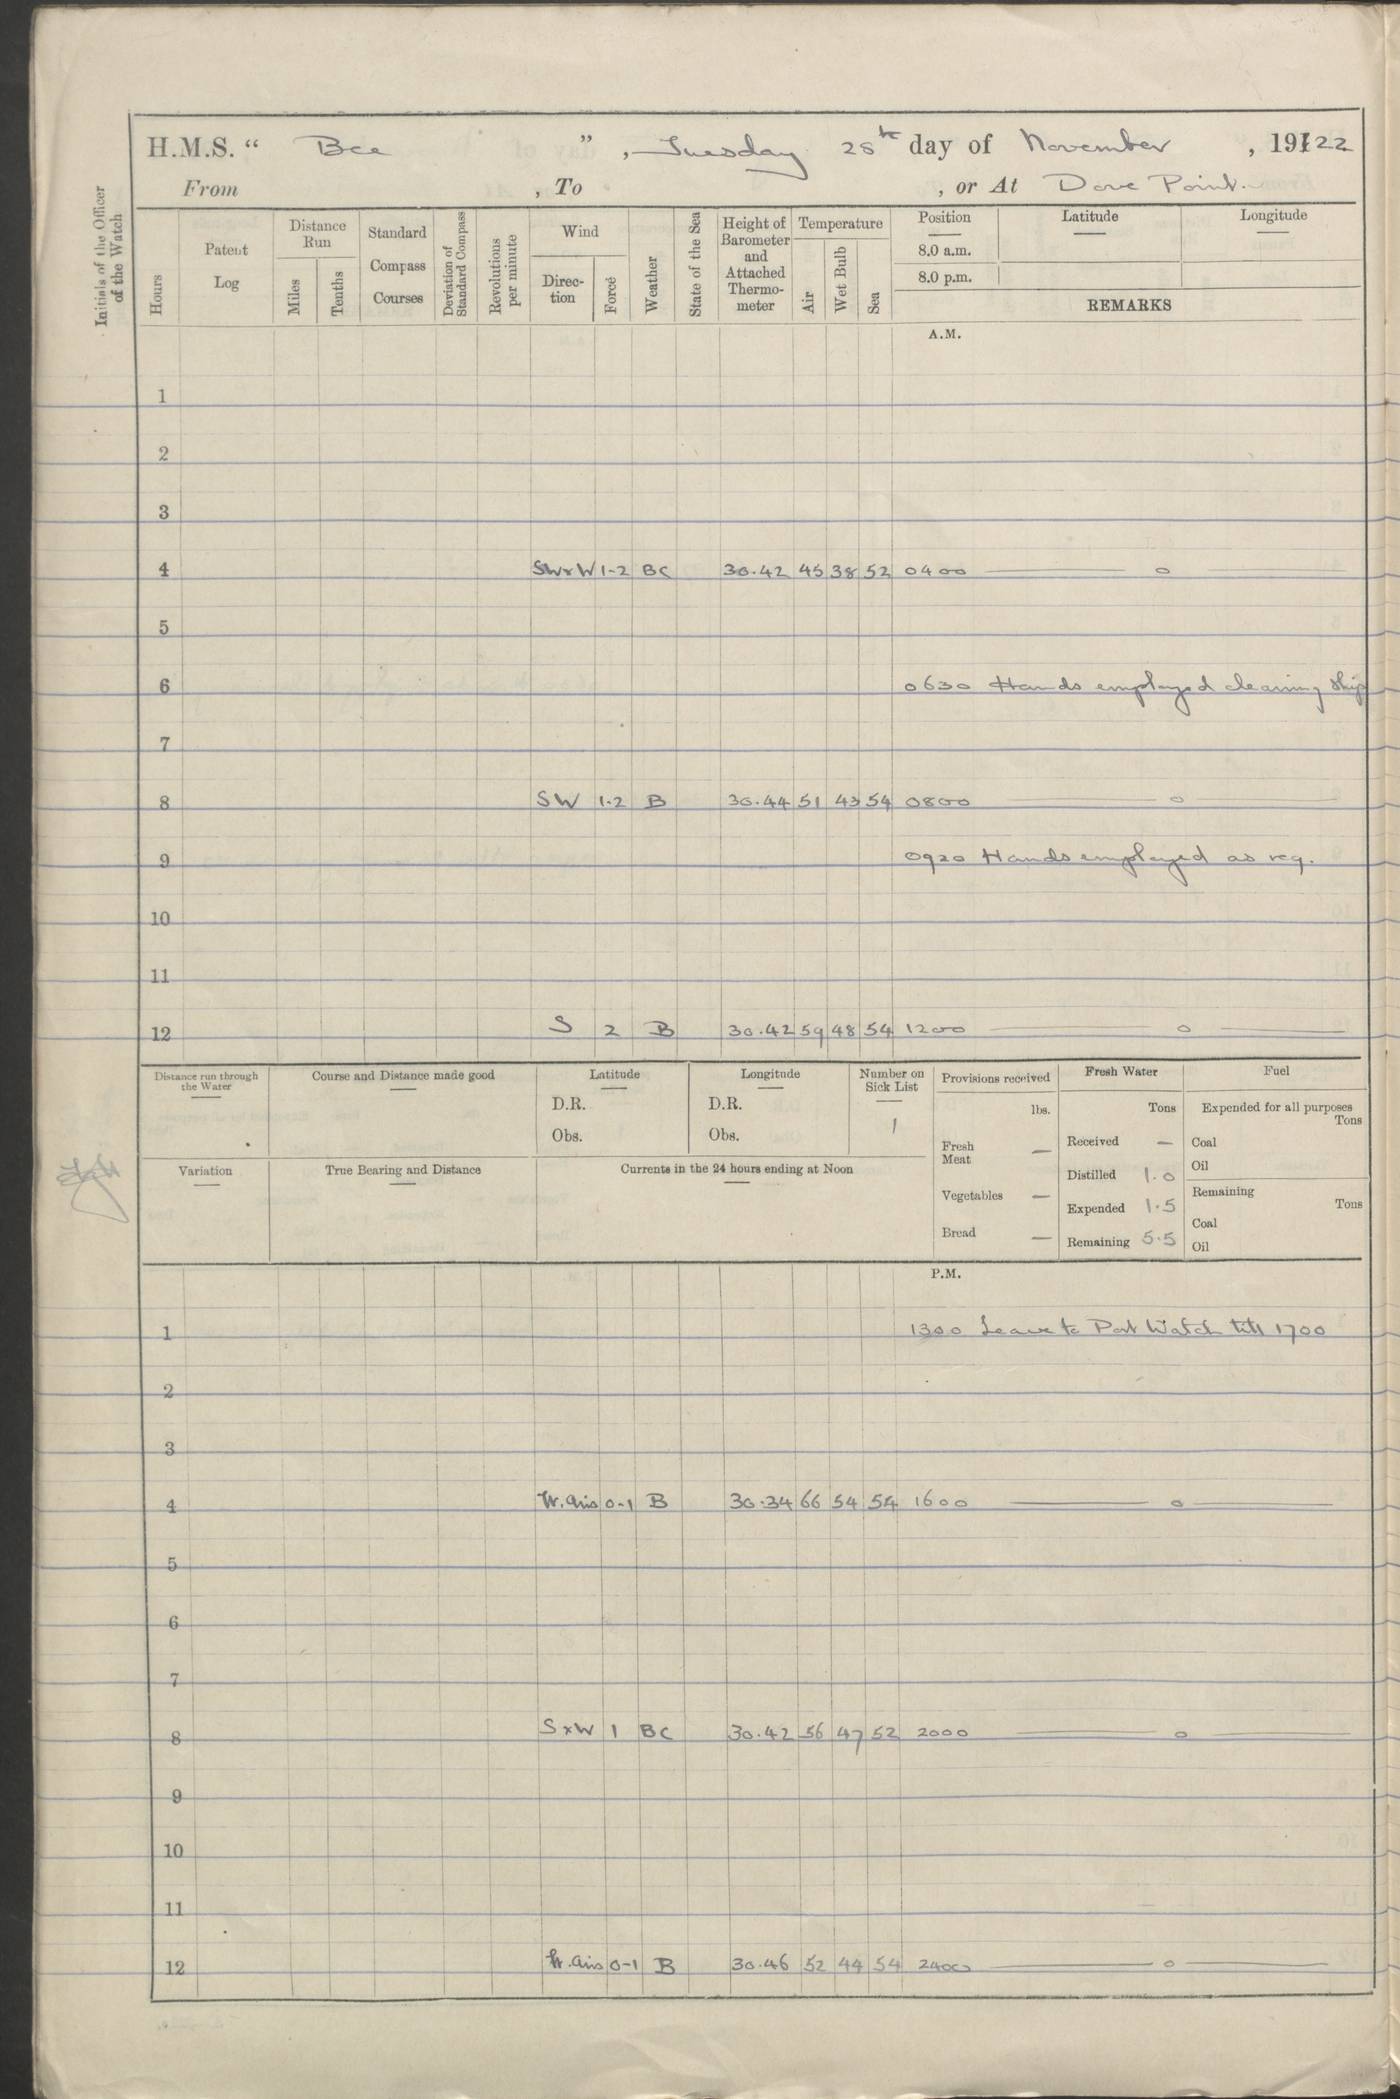 H.M.S. “ Bee ” , Tuesday 28th day of November , 19122
From , To , or At Dove Point.
Initials of the Officer of the Watch
Hours
Patent Log
Distance Run
Miles
Tenths
Standard Compass Courses
Deviation of Standard Compass
Revolutions per minute
Wind
Direc-tion
Force
Weather
State of the Sea
Height of Barometer and Attached Thermo-meter
Temperature
Air
Wet Bulb
Sea
Position Latitude Longitude
8.0 a.m.
8.0 p.m.
REMARKS
A.M.
1
2
3
4 SWxW 1-2 BC 30.42 45 38 52 0400 — o —
5
6 0630 Hands employed cleaning ship
7
8 SW 1-2 B 30.44 51 43 54 0800 — o —
9 0920 Hands employed as req.
10
11
12 S 2 B 30.42 59 48 54 1200 — o —
Distance run through the Water
Course and Distance made good
Latitude
D.R.
Obs.
Longitude
D.R.
Obs.
Number on Sick List
1
Variation
True Bearing and Distance
Currents in the 24 hours ending at Noon
Provisions received
lbs.
Fresh Meat —
Vegetables —
Bread —
Fresh Water
Tons
Received —
Distilled 1.0
Expended 1.5
Remaining 5.5
Fuel
Expended for all purposes
Tons
Coal
Oil
Remaining
Tons
Coal
Oil
P.M.
1 1300 Leave to Port Watch till 1700
2
3
4 lt. airs 0-1 B 30.34 66 54 54 1600 — o —
5
6
7
8 SxW 1 BC 30.42 56 47 52 2000 — o —
9
10
11
12 lt. airs 0-1 B 30.46 52 44 54 2400 — o —